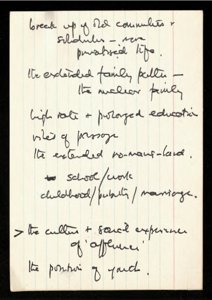 break up of old communities +
solidarities – more
privatised life.
the extended family pattern –
the nuclear family
high rate + prolonged education
rites of passage
the extended no-mans-land.
school/work
childhood/puberty/marriage.
> the culture + social experience
of 'affluence'
the position of youth.